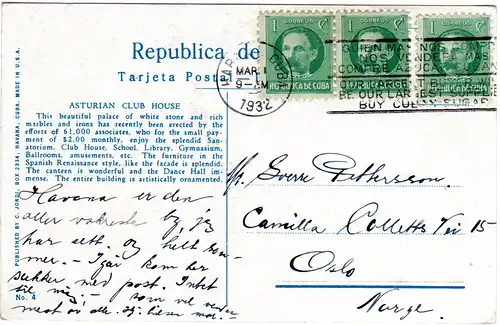 Republica de
Tarjeta Postal
ASTURIAN CLUB HOUSE
This beautiful palace of white stone and rich
marbles and irons has recently been erected by the
efforts of 61,000 associates, who for the small pay-
ment of $2.00 monthly, enjoy the splendid San-
atorium, Club House, School, Library, Gymnasium,
Ballrooms, amusements, etc. The furniture in the
Spanish Renaissance style, like the facade is splendid.
The canteen is wonderful and the Dance Hall im-
mense. The entire building is artistically ornamented.
Havana er den
aller vakreste by, jeg
har sett og helt som-
mer. - Igår kom her
sekker med post. Intet
til mig. - som vel venter
mest av alle.
No. 4
PUBLISHED BY C. JORDI, BOX 2334, HAVANA, CUBA. MADE IN U.S.A.
CORREOS
REPUBLICA DE CUBA
MAR
1932
QUIEN MAS NOS COMPRE
NOS VENDE
COMPRE
OUR LARGEST BUYER WILL
BE OUR LARGEST
BUY CUBAN SUGAR
Hr. Sverre Pettersson.
Camilla Colletts Vei 15
Oslo
Norge.